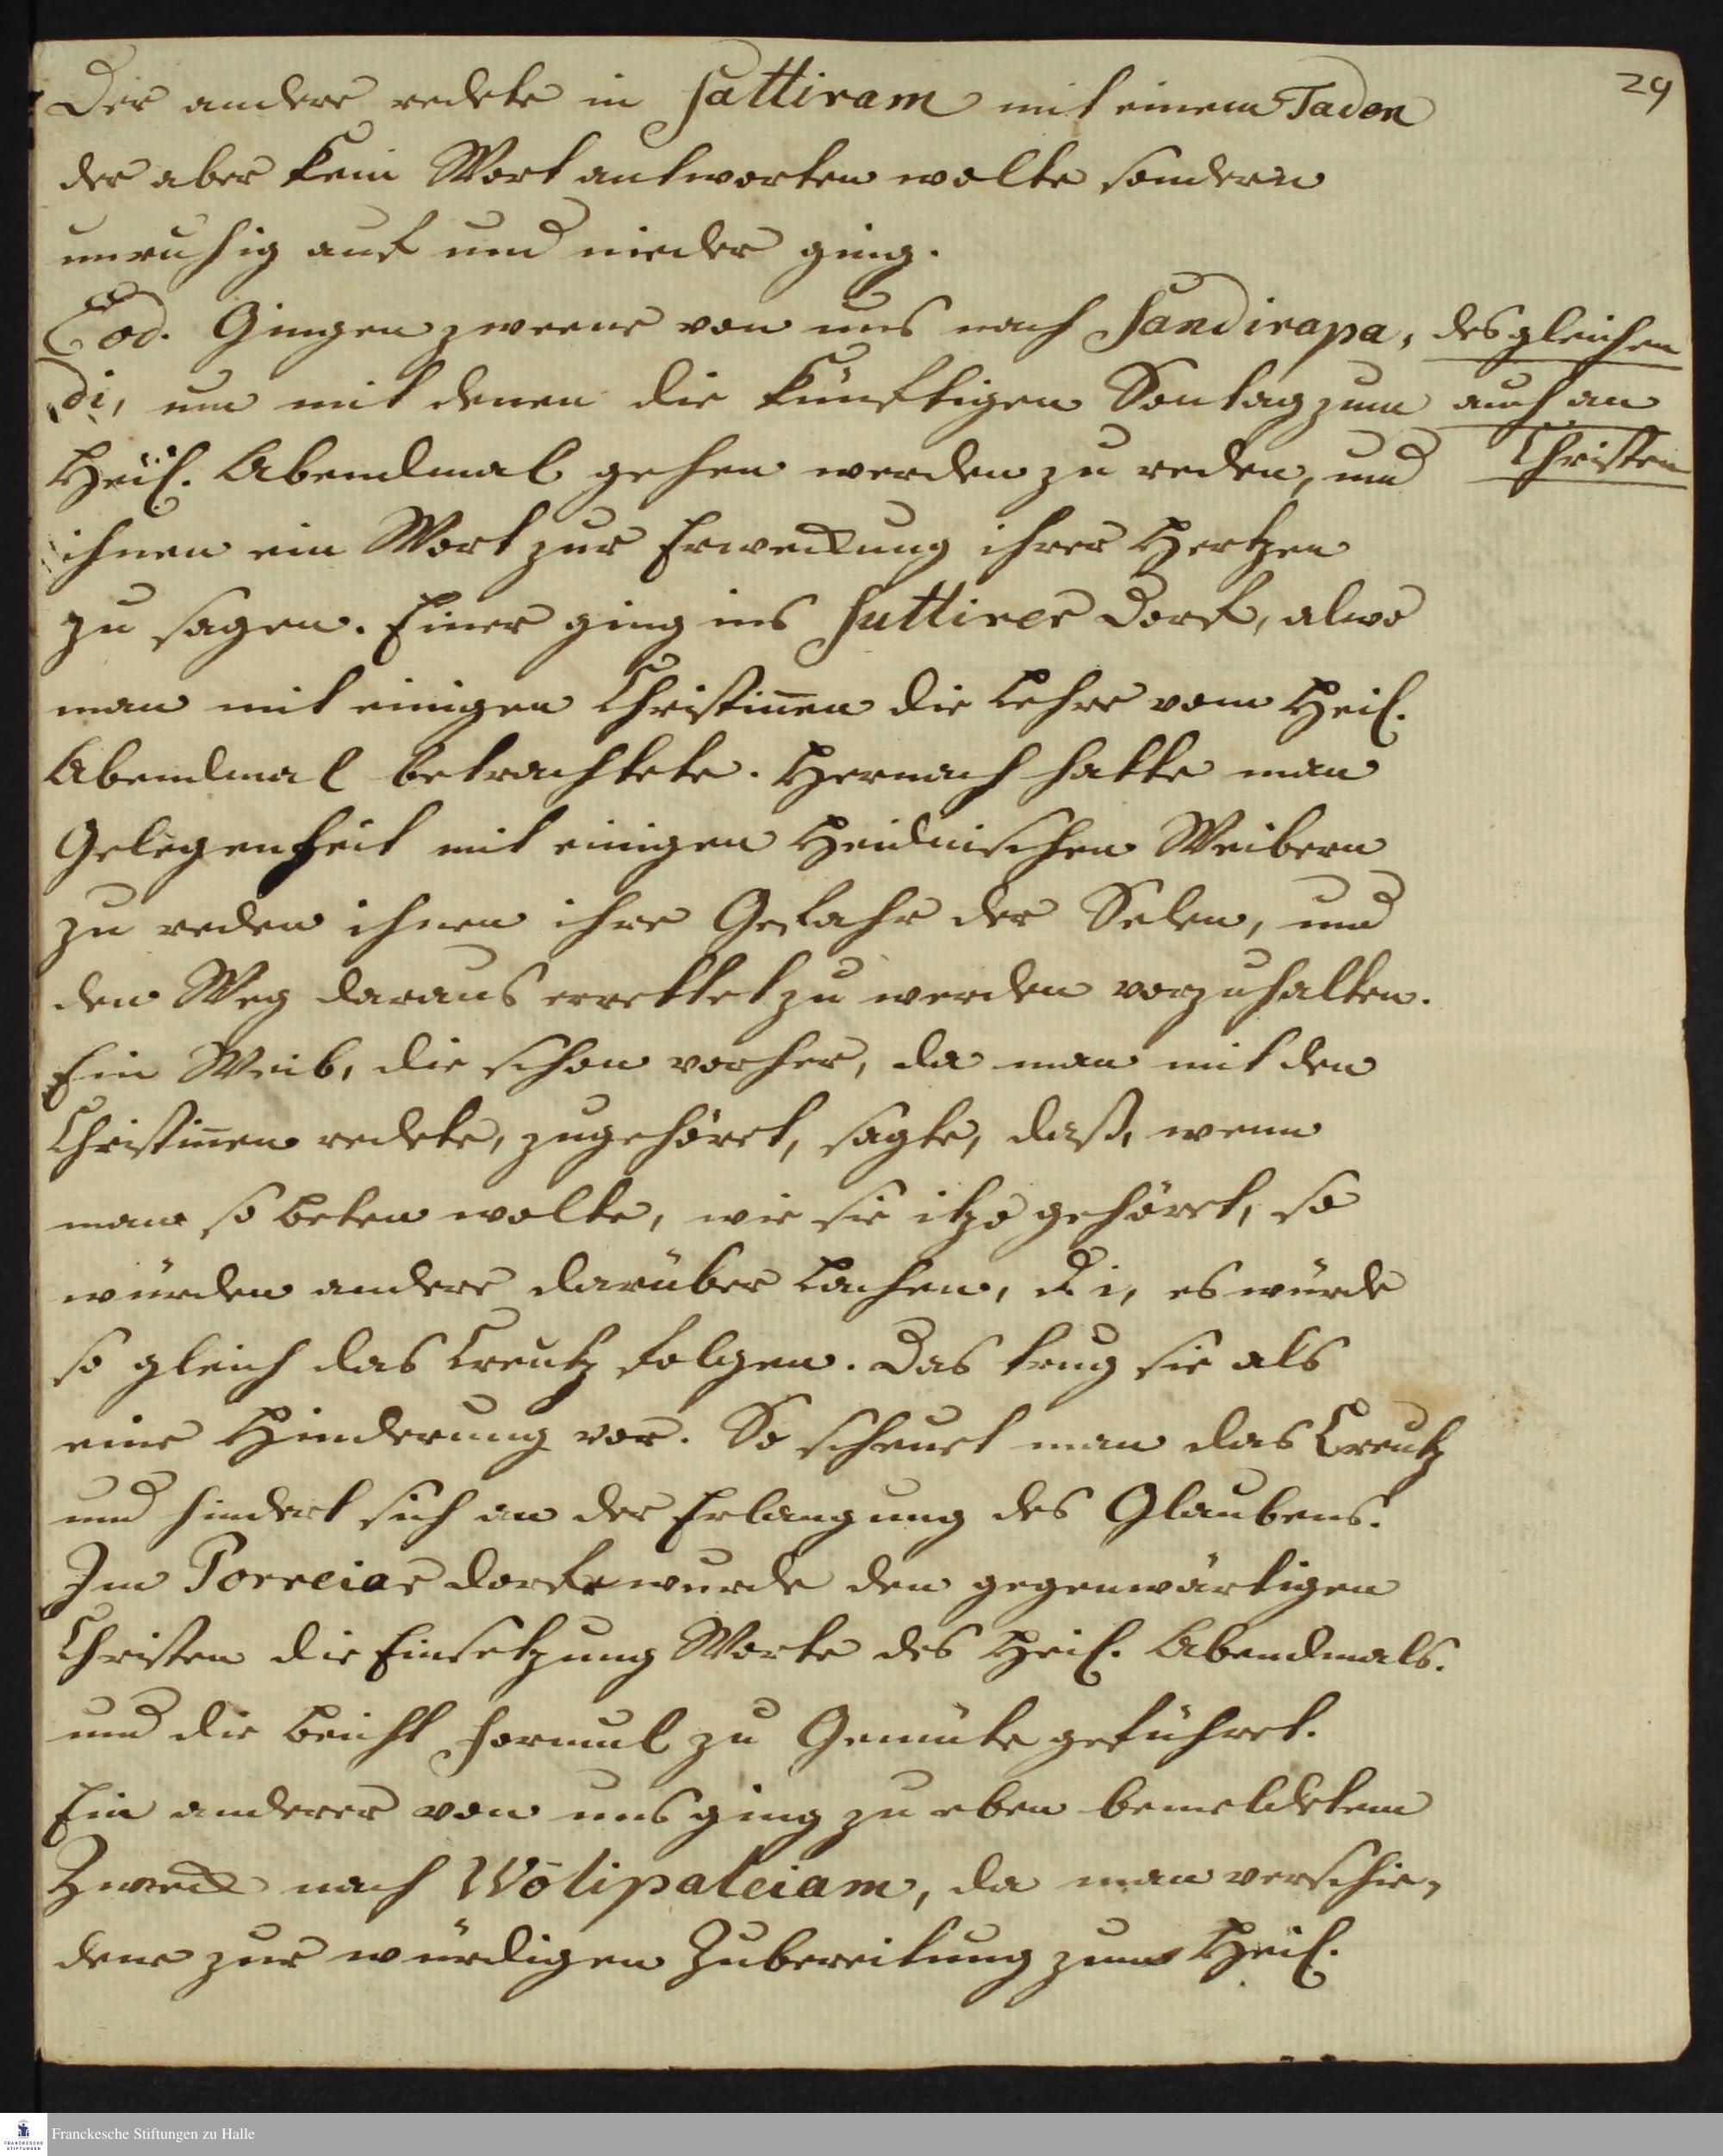 29
Der andere redete in Sattiram mit einem Taden
der aber kein Wort antworten wolte sondern
unruhig auf und nieder ging.
Eod. Gingen zweene von uns nach Sandirapa,
di, um mit denen die künftigen Sontag zum
Heil. Abendmal gehen werden zu reden, und
ihnen ein Wort zur Erweckung ihrer Hertzen
zu sagen. Einer ging ins Suttirer Dorf, alwo
man mit einigen Christinnen die Lehre vom Heil.
Abendmal betrachtete. Hernach hatte man
Gelegenheit mit einigen Heidnischen Weibern
zu reden ihnen ihre Gefahr der Selen, und
den Weg daraus errettet zu werden vorzuhalten.
Ein Weib, die schon vorher, da man mit den
Christinnen redete, zugehöret, sagte, daß, wenn
man so beten wolte, wie sie itzo gehöret, so
würden andere darüber lachen, d. i. es würde
so gleich das Creutz folgen. Das trug sie als
eine Hinderung vor. So scheuet man das Creutz
und hindert sich an der Erlangung des Glaubens.
Im Porreiar dorfe wurde den gegenwärtigen
Christen die Einsetzung Worte des Heil. Abendmals.
und die Beicht formul zu Gemüte geführet.
Ein anderer von uns ging zu eben bemeldetem
Zweck nach Wölipaleiam, da man verschie-
dene zur würdigen Zubereitung zum Heil.
desgleichen
auch an
Christen
Franckesche Stiftungen zu Halle